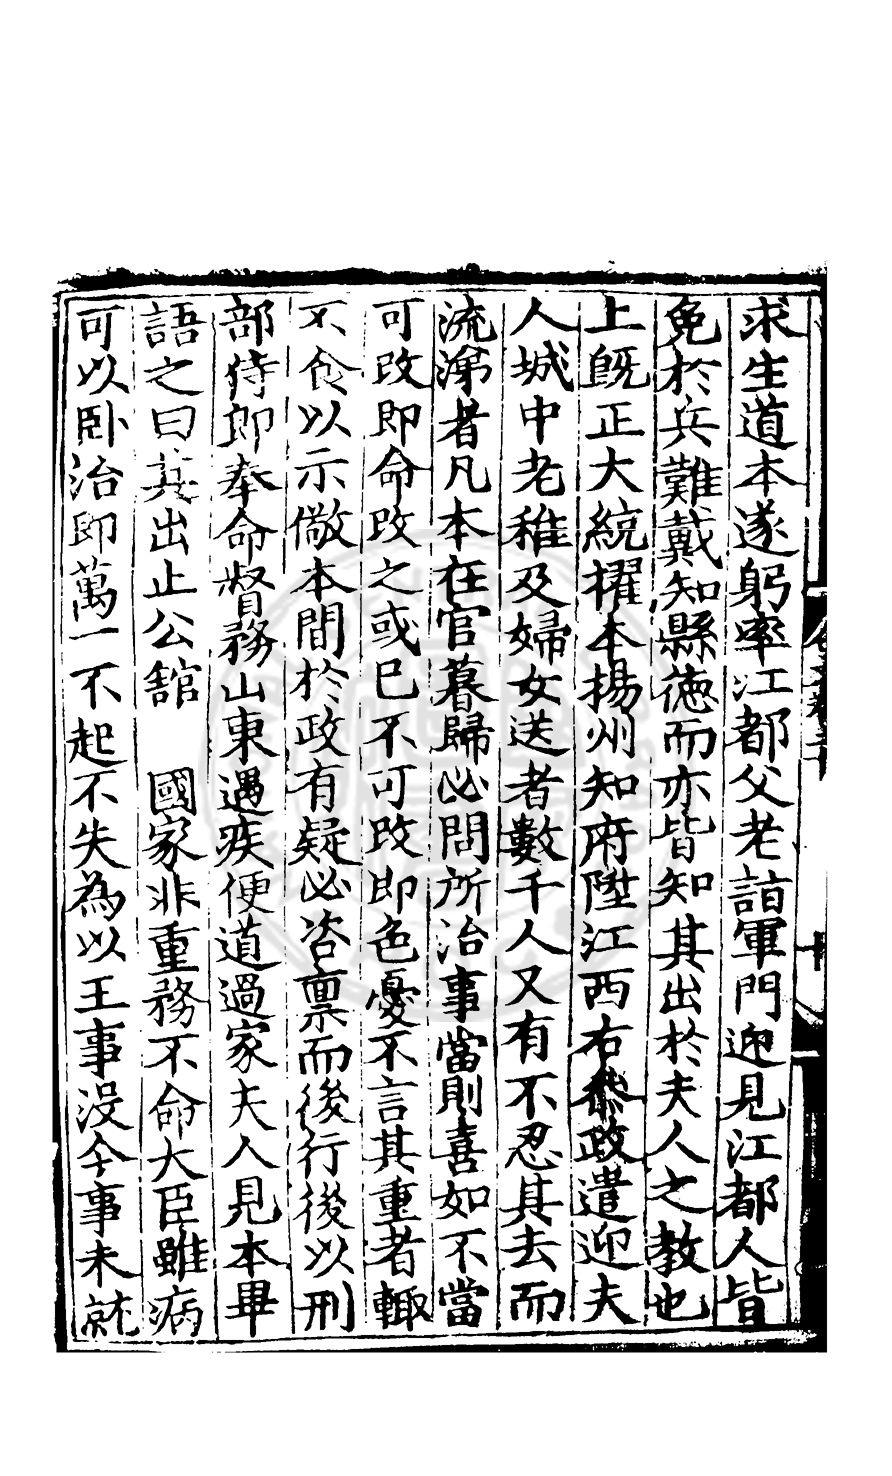 求生道本遂躬率江都父老詣軍門迎見江都人皆
免於兵難戴知縣德而亦皆知其出於夫人之教也
上既正大統擢本揚州知府陞江西右叅政遣迎夫
人城中老稚及婦女送者數千人又有不忍其去而
流涕者凡本在官暮歸必問所治事當則喜如不當
可改即命改之或已不可改即色憂不言其重者輙
不食以示儆本間於政有疑必咨禀而後行後以刑
部侍郎奉命督務山東遇疾便道過家夫人見本畢
語之曰莫出止公舘　國家非重務不命大臣雖病
可以卧治即萬一不起不失為以王事没今事未就